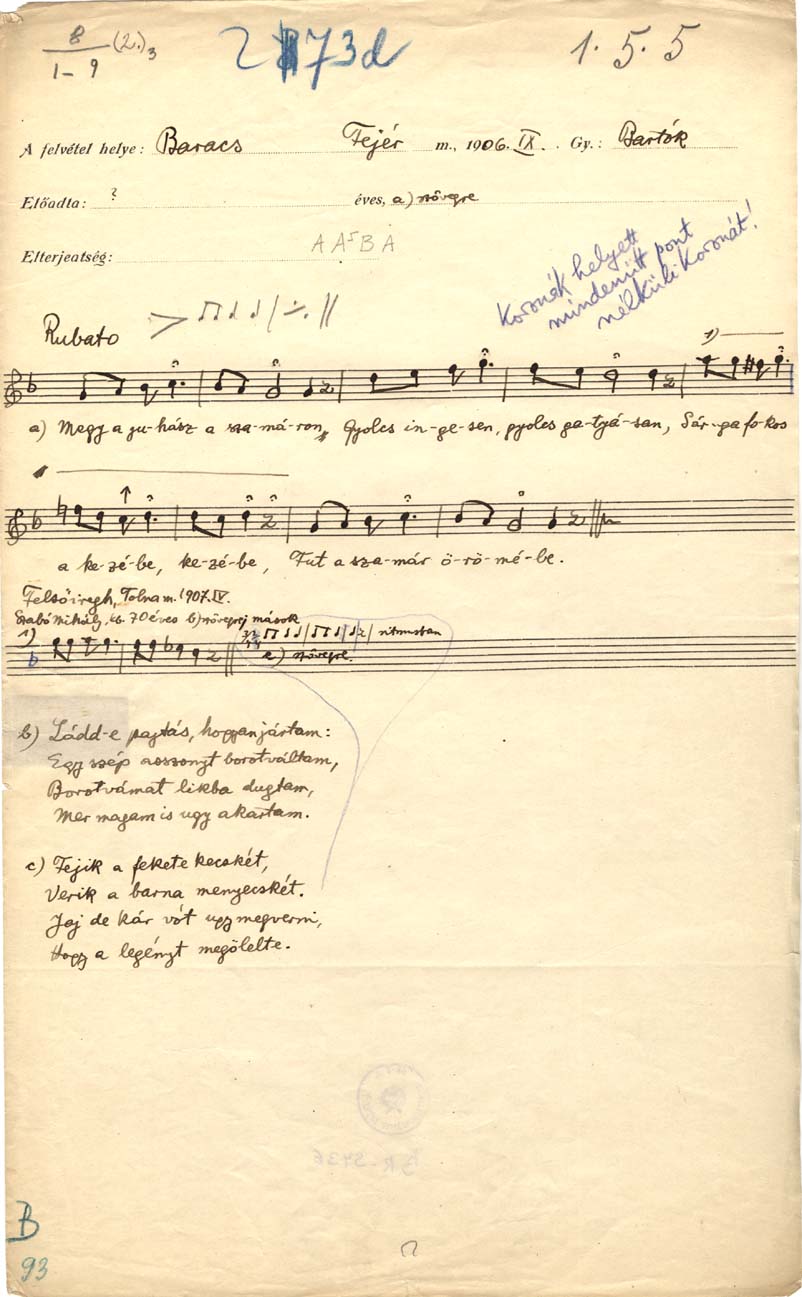 8
1-9 (2.)3
73d
1. 5. 5
A felvétel helye: Baracs Fejér m., 1906. IX. Gy.: Bartók
Előadta: ? éves, a) szövegre
Elterjedtség: A A⁵ B A
Koronák helyett
mindenütt pont
nélküli koronát!
Rubato
1)
a) Megy a ju-hász a sza-má-ron, Gyolcs in-ge-sen, gyolcs ga-tyá-san, Sár-ga fo-kos
a ke-zé-be, ke-zé-be, Fut a sza-már ö-rö-mé-be.
Felsőiregh, Tolna m. 1907. IV.
Szabó Mihály, kb. 70 éves b) szöveggel mások
1) ritmusban
c) szövegre.
b) Ládd-e pajtás, hogyan jártam:
Egy szép asszonyt borotváltam,
Borotvámat likba dugtam,
Mer magam is ugy akartam.
c) Fejik a fekete kecskét,
Verik a barna menyecskét.
Jaj de kár vót ugy megverni,
Hogy a legényt megölelte.
B
93